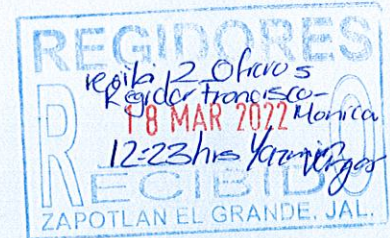 REGIDORES
recibi 2 Oficios
Regidor Francisco-
Monica
18 MAR 2022
12-23hrs Yazmin
Vargas
RECIBIDO
ZAPOTLAN EL GRANDE, JAL.